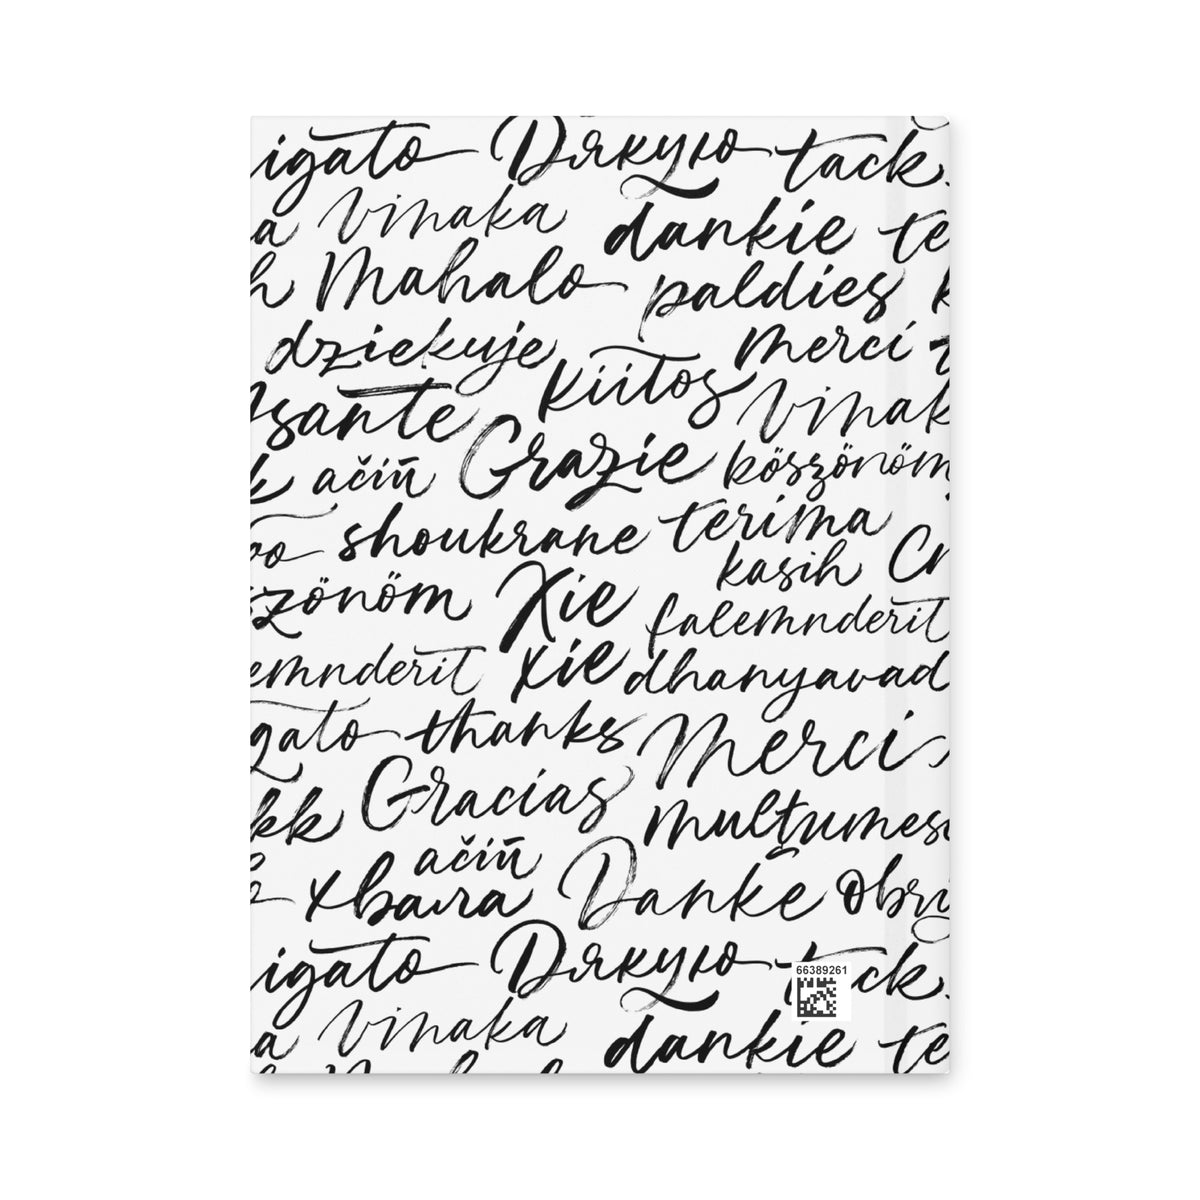 igato Дякую tack
a vinaka dankie te
h Mahalo paldies k
dziekuje merci t
sante kiitos vinak
k ačiū Grazie köszönöm
shoukrane terima kasih
szönöm Xie xie falemnderit
emnderit dhanyavad
gato thanks Merci
kk Gracias multumes
ačiū хвала Danke Obri
igato Дякую tack
66389261
a vinaka dankie te